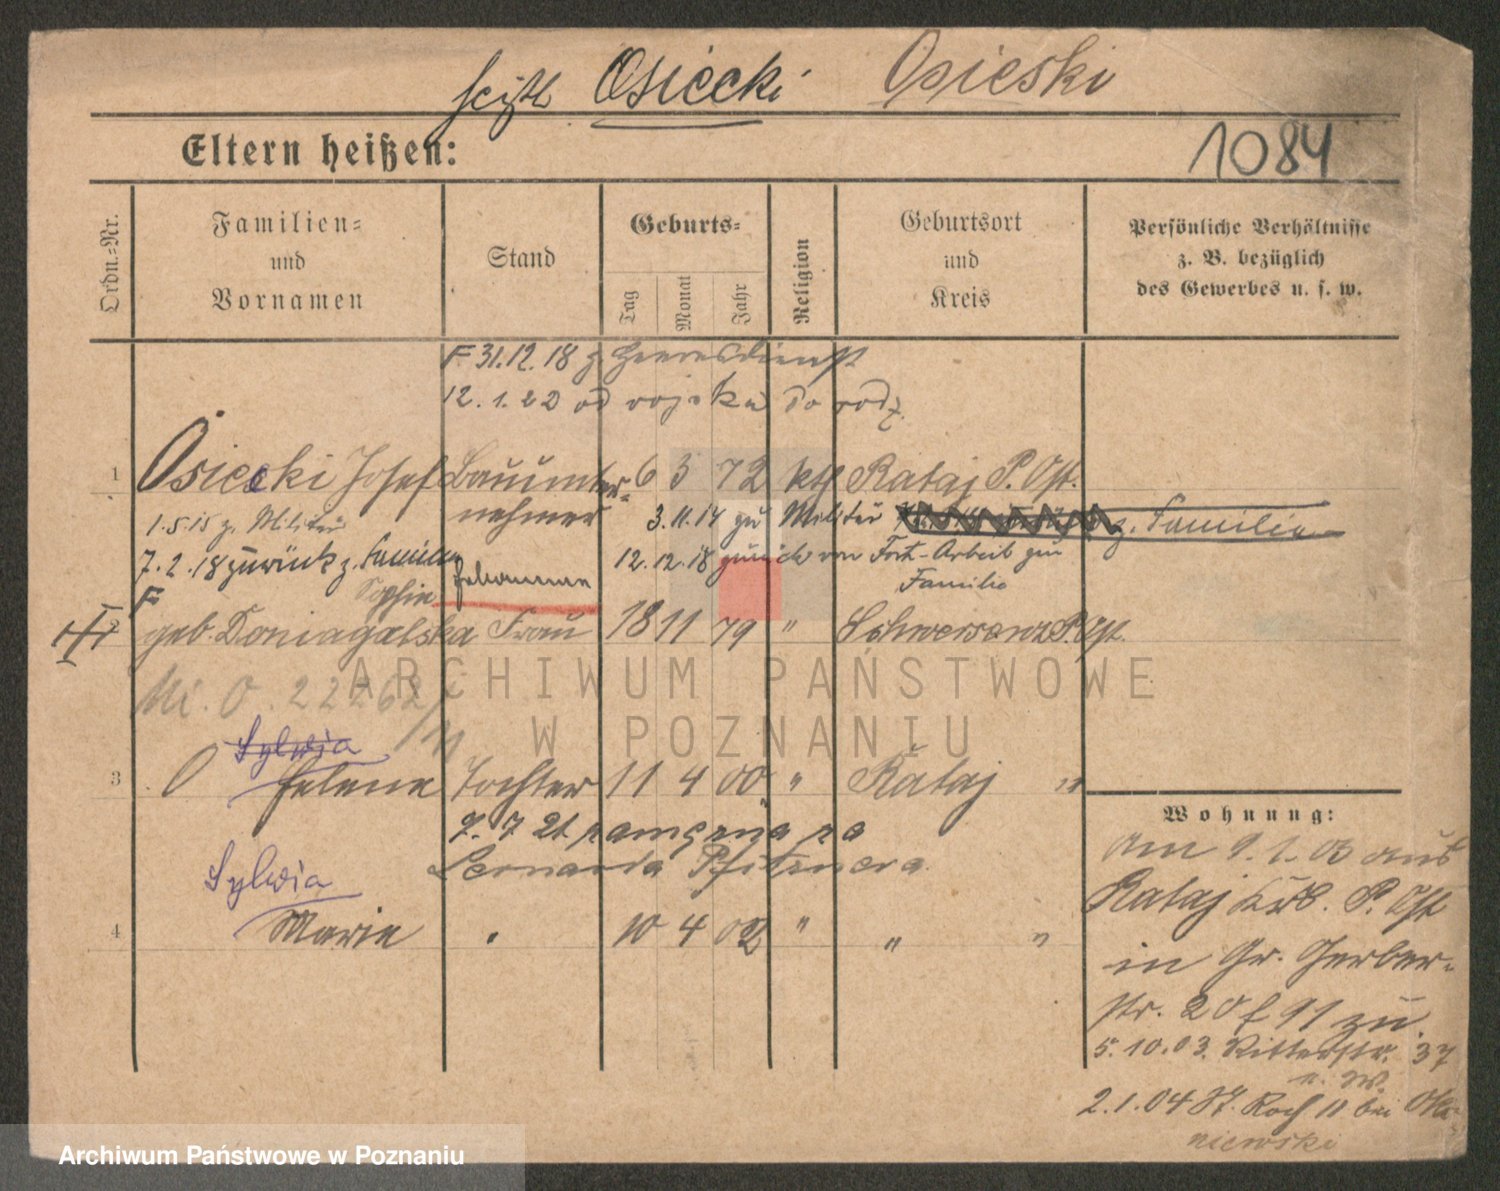 Osiecki Osieski
Eltern heißen:
1084
Ordn.-Nr.
Familien-
und
Vornamen
Stand
Geburts-
Tag
Monat
Jahr
Religion
Geburtsort
und
Kreis
Persönliche Verhältnisse
z. B. bezüglich
des Gewerbes u. s. w.
F 31.12.18 z Heeresdienst
12.1.20 od wojska do rodz.
1 Osiecki Josef Bauunter- 6 3 72 kth Rataj P. Ost.
nehmer
1.5.15 z. Militär
3.11.14 zu Militär z. Familie
7.2.18 zurück z. Familie
12.12.18 zurück von Fort-Arbeit zur
Familie
Hebamme
F Sophie
geb. Doniagalska Frau 18 11 79 " Schwersenz P. Ost.
22262
Sylwia
3 Helene Tochter 11 4 00 " Rataj "
7.7.21 zamężna za
Leonarda Pfitznera
Sylwia
4 Marie " 10 4 02 " " "
Wohnung:
Am 9.1.03 aus
Rataj Krs. P. Ost
in Gr. Gerber-
str. 20 f 91 zu.
5.10.03. Ritterstr. 37
2.1.04 St. Roch 11 bei
niewski
ARCHIWUM PAŃSTWOWE
W POZNANIU
Archiwum Państwowe w Poznaniu